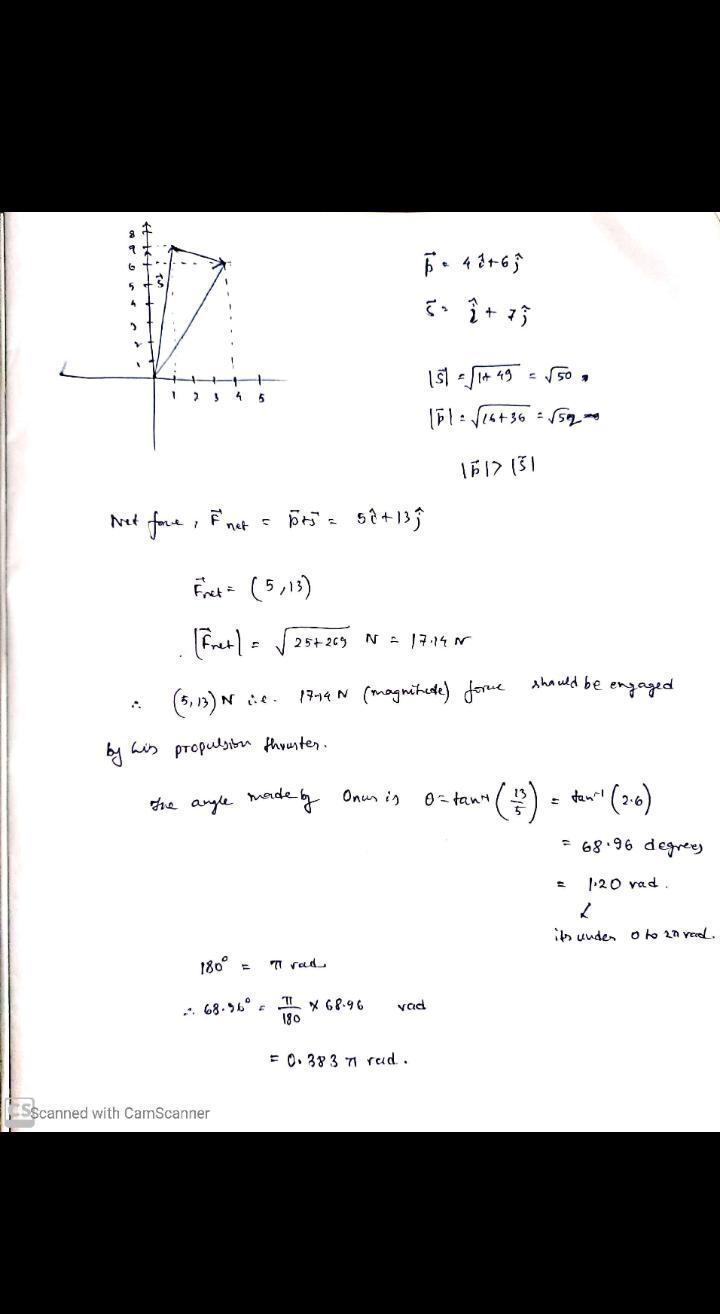 8
7
6
5
4
3
2
1
s⃗
1 2 3 4 5
p⃗ = 4î+6ĵ
s⃗ = î + 7ĵ
|s⃗| = √1+49 = √50
|p⃗| = √16+36 = √52
|p⃗| > |s⃗|
Net force, F⃗net = p⃗+s⃗ = 5î+13ĵ
F⃗net = (5,13)
|F⃗net| = √25+269 N = 17.14 N
∴ (5,13) N i.e. 17.14 N (magnitude) force should be engaged
by his propulsion thruster.
The angle made by is θ = tan⁻¹ (13/5) = tan⁻¹ (2.6)
= 68.96 degrees
= 1.20 rad.
its under 0 to 2π rad.
180° = π rad
∴ 68.96° = π/180 × 68.96 rad
= 0.383 π rad.
CS Scanned with CamScanner